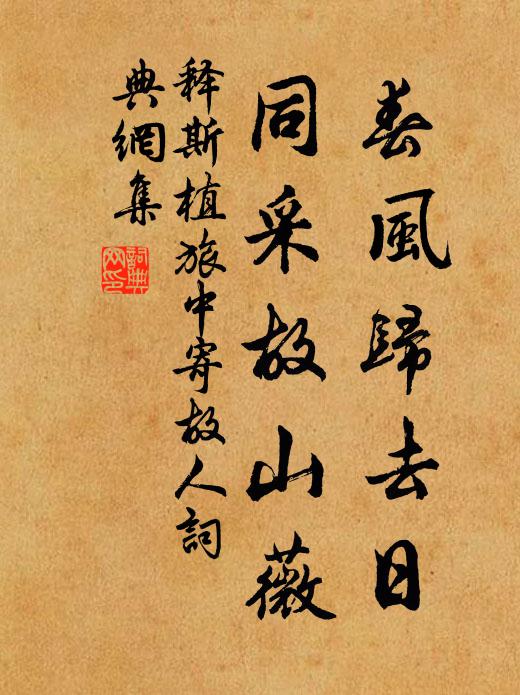 春風歸去日
同采故山薇
释斯植旅中寄故人詞
典網集
詞典
网印